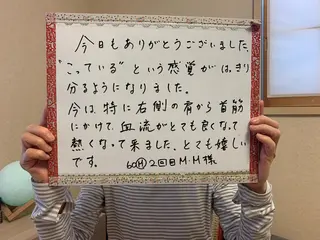 今日もありがとうございました。
"こっている"という感覚がはっきり
分るようになりました。
今は、特に右側の肩から首筋
にかけて、血流がとても良くなって
熱くなって来ました。とても嬉しい
です。 60代 2回目 M.M様